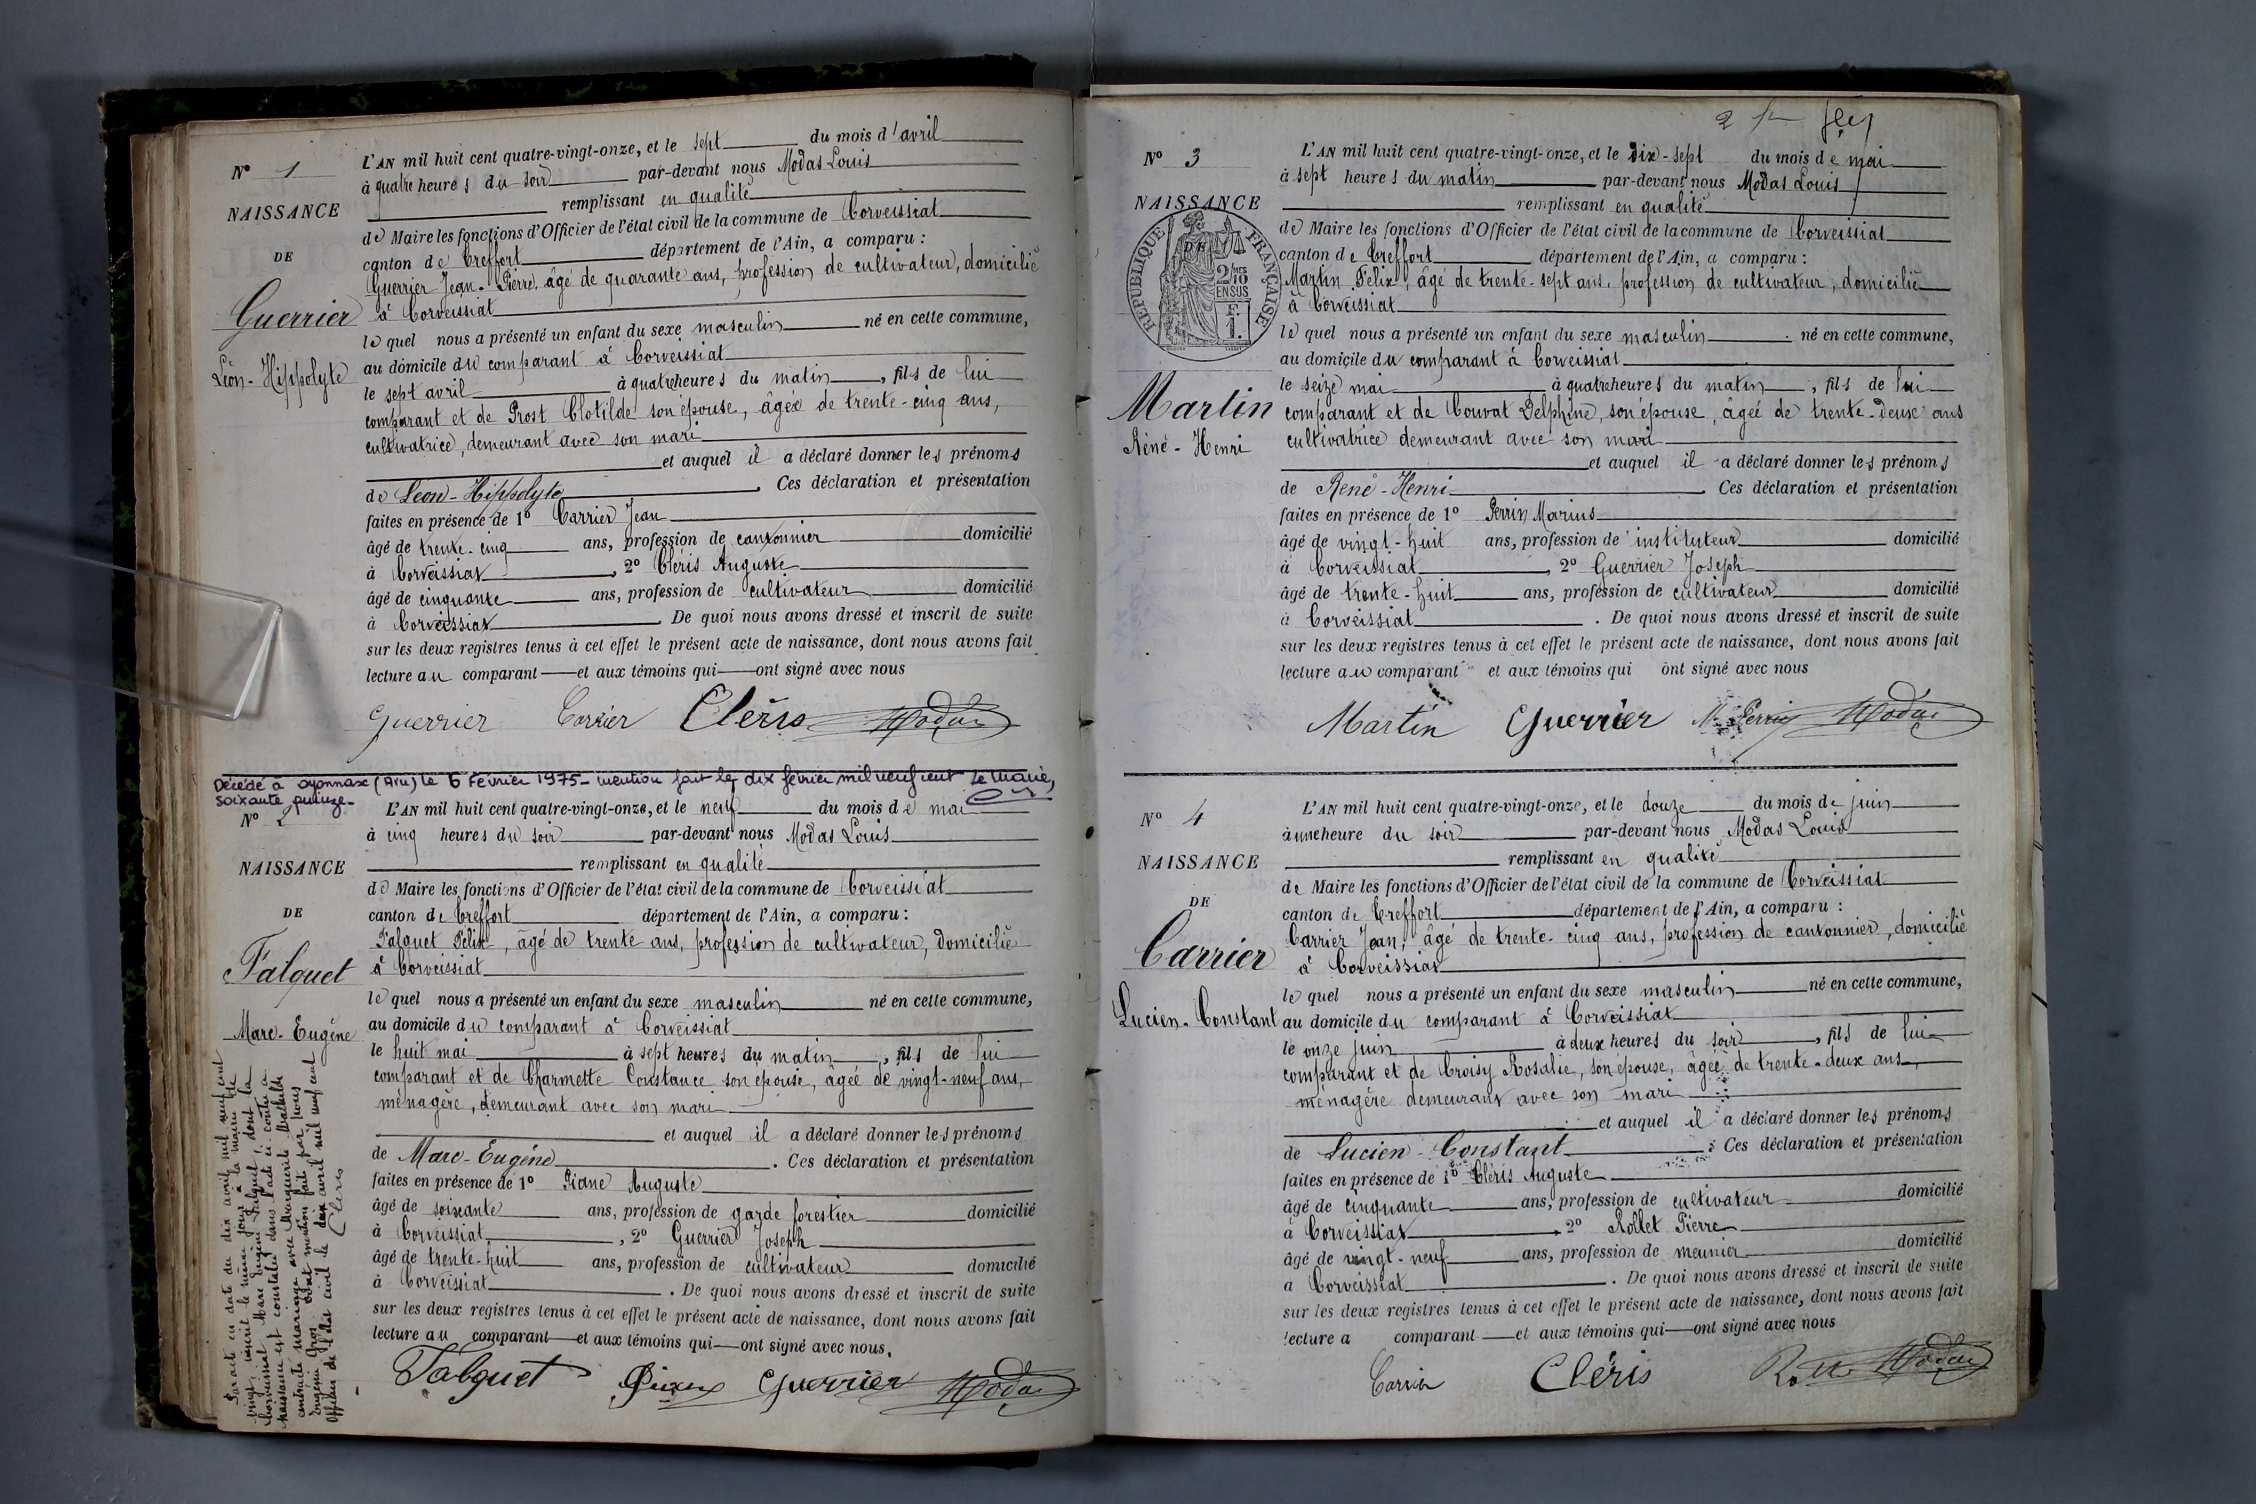 N° 1
NAISSANCE
DE
Guerrier
Léon-Hippolyte
L'AN mil huit cent quatre-vingt-onze, et le sept du mois d'avril
à quatre heures du soir par-devant nous Modas Louis
remplissant en qualité
de Maire les fonctions d'Officier de l'état civil de la commune de Corveissiat
canton de Treffort département de l'Ain, a comparu :
Guerrier Jean-Pierre, âgé de quarante ans, profession de cultivateur, domicilié
à Corveissiat
lequel nous a présenté un enfant du sexe masculin né en cette commune,
au domicile du comparant à Corveissiat
le sept avril à quatre heures du matin, fils de lui
comparant et de Prost Clotilde son épouse, âgée de trente-cinq ans,
cultivatrice, demeurant avec son mari
et auquel il a déclaré donner les prénoms
de Léon-Hippolyte. Ces déclaration et présentation
faites en présence de 1° Carrier Jean
âgé de trente-cinq ans, profession de cantonnier domicilié
à Corveissiat, 2° Cléris Auguste
âgé de cinquante ans, profession de cultivateur domicilié
à Corveissiat. De quoi nous avons dressé et inscrit de suite
sur les deux registres tenus à cet effet le présent acte de naissance, dont nous avons fait
lecture au comparant et aux témoins qui ont signé avec nous
Guerrier Carrier Cléris Modas
Décédé à Oyonnax (Ain) le 6 Février 1975 - mention fait le dix février mil neuf cent Le Maire,
soixante quinze-
N° 2
NAISSANCE
DE
Falquet
Marc-Eugène
Par acte en date du dix avril mil neuf cent
vingt, inscrit le même jour à la mairie de
Corveissiat, Marc Eugène Falquet, dont la
naissance est constatée dans l'acte ci-contre a
contracté mariage avec Marguerite Mathilde
Eugénie Gros dont mention faite par nous
Officier de l'État civil le dix avril mil neuf cent
Cléris
L'AN mil huit cent quatre-vingt-onze, et le neuf du mois de mai
à cinq heures du soir par-devant nous Modas Louis
remplissant en qualité
de Maire les fonctions d'Officier de l'état civil de la commune de Corveissiat
canton de Treffort département de l'Ain, a comparu :
Falquet Félix, âgé de trente ans, profession de cultivateur, domicilié
à Corveissiat
lequel nous a présenté un enfant du sexe masculin né en cette commune,
au domicile du comparant à Corveissiat
le huit mai à sept heures du matin, fils de lui
comparant et de Charmette Constance son épouse, âgée de vingt-neuf ans,
ménagère, demeurant avec son mari
et auquel il a déclaré donner les prénoms
de Marc-Eugène. Ces déclaration et présentation
faites en présence de 1° Piane Auguste
âgé de soixante ans, profession de garde forestier domicilié
à Corveissiat, 2° Guerrier Joseph
âgé de trente-huit ans, profession de cultivateur domicilié
à Corveissiat. De quoi nous avons dressé et inscrit de suite
sur les deux registres tenus à cet effet le présent acte de naissance, dont nous avons fait
lecture au comparant et aux témoins qui ont signé avec nous.
Falquet Guerrier Modas
N° 3
NAISSANCE
RÉPUBLIQUE FRANÇAISE
2/10 EN SUS
F. 1.
Martin
René-Henri
L'AN mil huit cent quatre-vingt-onze, et le dix-sept du mois de mai
à sept heures du matin par-devant nous Modas Louis
remplissant en qualité
de Maire les fonctions d'Officier de l'état civil de la commune de Corveissiat
canton de Treffort département de l'Ain, a comparu :
Martin Félix, âgé de trente-sept ans, profession de cultivateur, domicilié
à Corveissiat
lequel nous a présenté un enfant du sexe masculin né en cette commune,
au domicile du comparant à Corveissiat
le seize mai à quatre heures du matin, fils de lui
comparant et de Couvat Delphine, son épouse, âgée de trente-deux ans
cultivatrice demeurant avec son mari
et auquel il a déclaré donner les prénoms
de René-Henri. Ces déclaration et présentation
faites en présence de 1° Perrin Marius
âgé de vingt-huit ans, profession de instituteur domicilié
à Corveissiat, 2° Guerrier Joseph
âgé de trente-huit ans, profession de cultivateur domicilié
à Corveissiat. De quoi nous avons dressé et inscrit de suite
sur les deux registres tenus à cet effet le présent acte de naissance, dont nous avons fait
lecture au comparant et aux témoins qui ont signé avec nous
Martin Guerrier M. Perrin Modas
N° 4
NAISSANCE
DE
Carrier
Lucien-Constant
L'AN mil huit cent quatre-vingt-onze, et le douze du mois de juin
à une heure du soir par-devant nous Modas Louis
remplissant en qualité
de Maire les fonctions d'Officier de l'état civil de la commune de Corveissiat
canton de Treffort département de l'Ain, a comparu :
Carrier Jean, âgé de trente-cinq ans, profession de cantonnier, domicilié
à Corveissiat
lequel nous a présenté un enfant du sexe masculin né en cette commune,
au domicile du comparant à Corveissiat
le onze juin à deux heures du soir, fils de lui
comparant et de Croisy Rosalie, son épouse, âgée de trente-deux ans,
ménagère demeurant avec son mari
et auquel il a déclaré donner les prénoms
de Lucien-Constant. Ces déclaration et présentation
faites en présence de 1° Cléris Auguste
âgé de cinquante ans, profession de cultivateur domicilié
à Corveissiat, 2° Rollet Pierre
âgé de vingt-neuf ans, profession de meunier domicilié
à Corveissiat. De quoi nous avons dressé et inscrit de suite
sur les deux registres tenus à cet effet le présent acte de naissance, dont nous avons fait
lecture a comparant et aux témoins qui ont signé avec nous
Carrier Cléris Modas